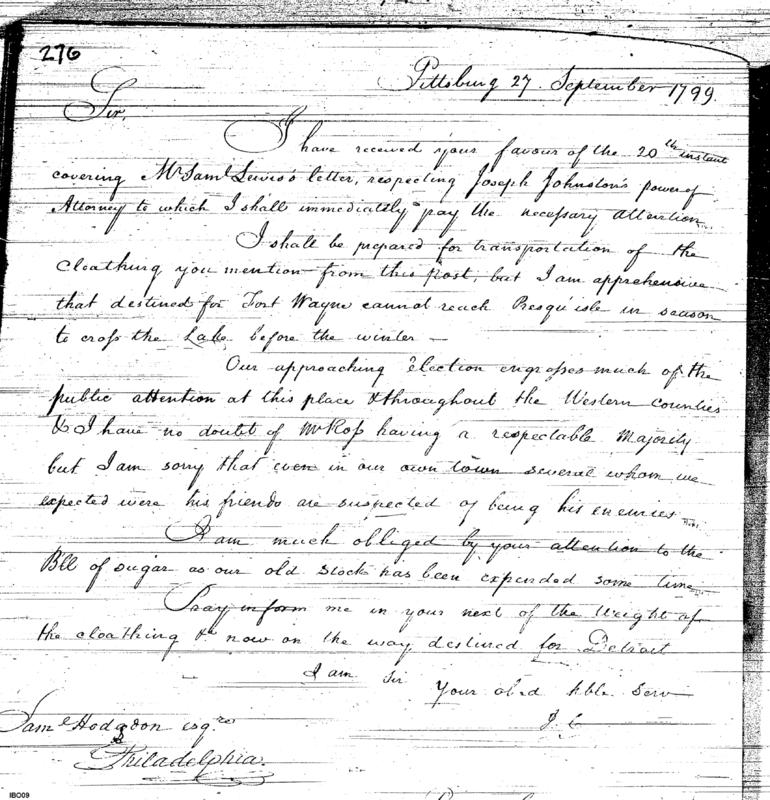 276
Pittsburg 27. September 1799.
Sir,
I have received your favour of the 20th instant
covering Mr Saml Lewis's letter, respecting Joseph Johnston's power of
Attorney to which I shall immediatly pay the necessary attention
I shall be prepared for transportation of the
cloathing you mention from this post, but I am apprehensive
that destined for Fort Wayne cannot reach Presqu'isle in season
to cross the Lake before the winter —
Our approaching Election engrosses much of the
public attention at this place & throughout the Western Counties
& I have no doubt of Mr Ross having a respectable Majority
but I am sorry that even in our own town several whom we
expected were his friends are suspected of being his enemies
I am much obliged by your attention to the
Bll of sugar as our old stock has been expended some time
Pray inform me in your next of the Weight of
the cloathing &c now on the way destined for Detroit
I am Sir
Your obed Hble Serv
J. C
Saml Hodgdon esqre
Philadelphia.
IBO09